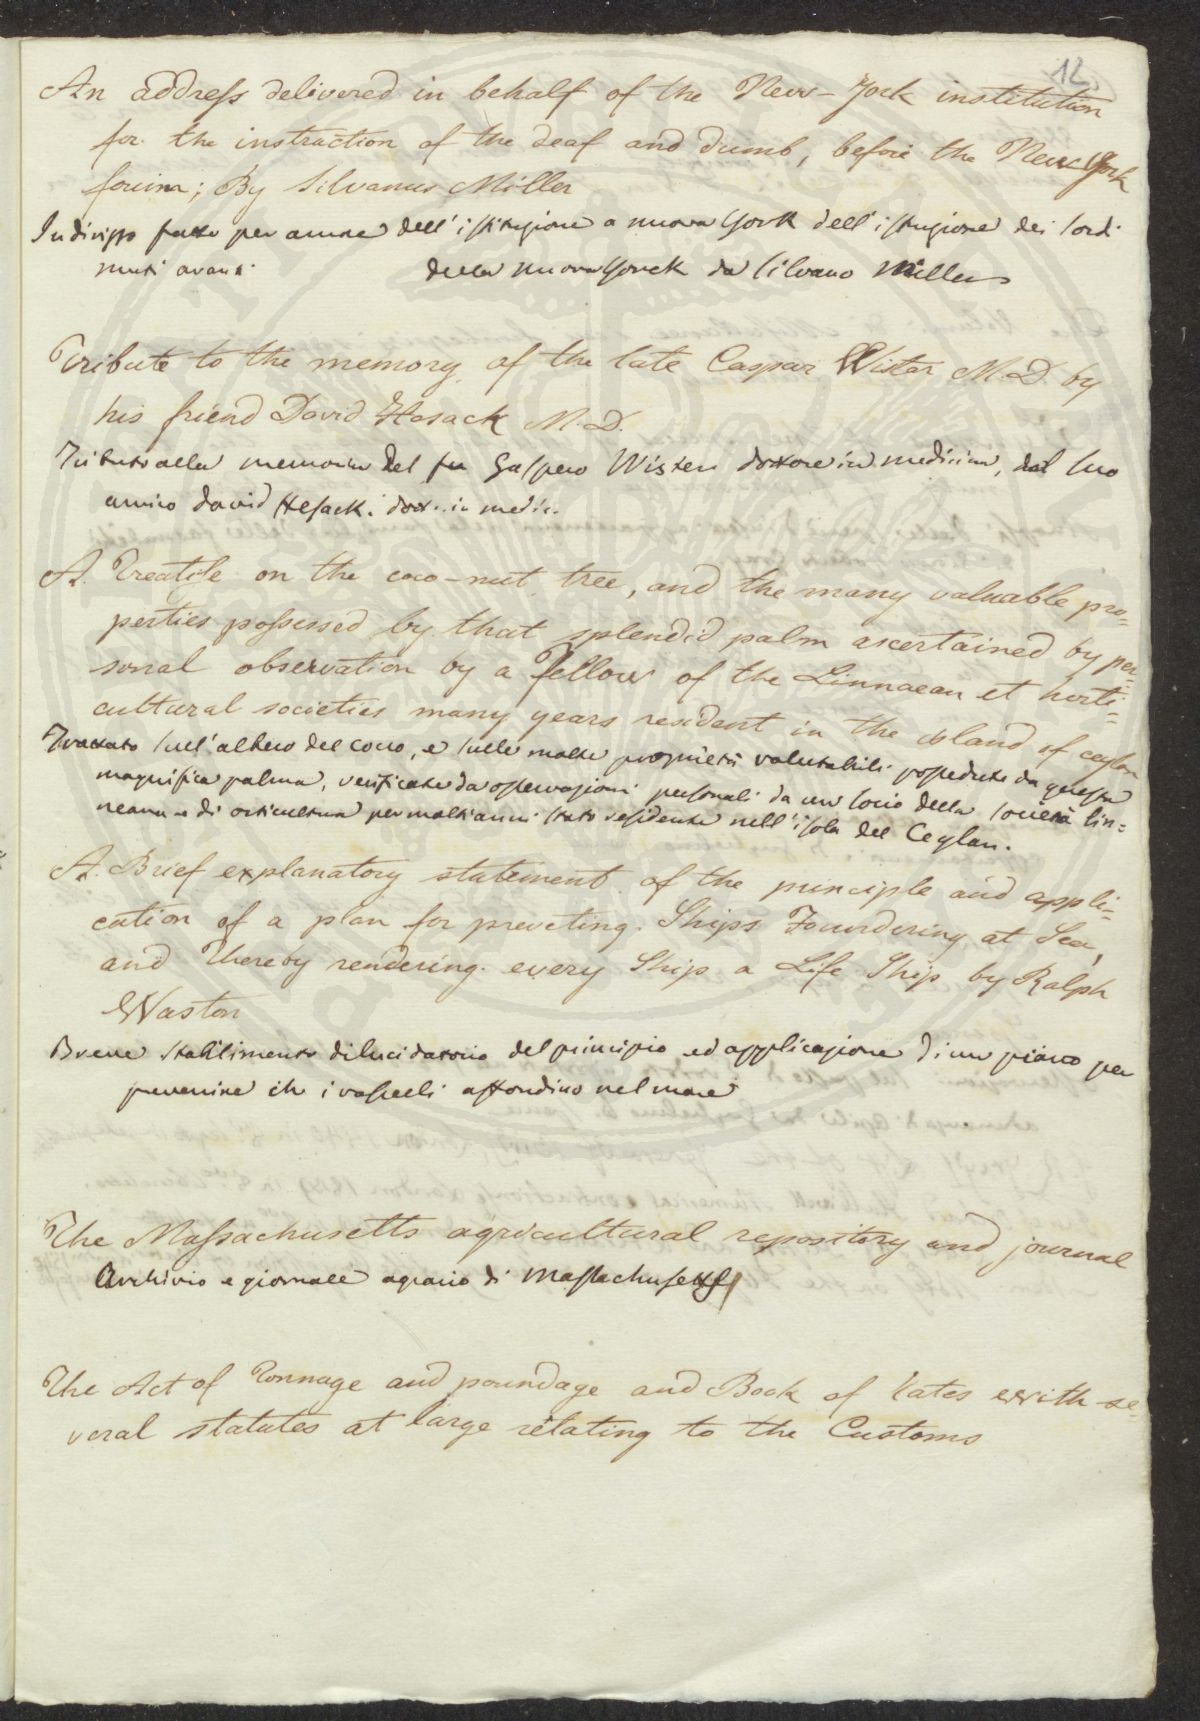 12
An address delivered in behalf of the New-York institution
for the instruction of the deaf and dumb, before the New York
forum; By Silvanus Miller
Indirizzo fatto per amore dell'istituzione a nuova York dell'istruzione dei sordi
muti avanti della nuova Yorck da Silvano Miller
Tribute to the memory of the late Caspar Wistar M.D. by
his friend David Hosack M.D.
Tributo alla memoria del fu Gaspero Wister dottore in medicina, dal suo
amico david Hosack. dott. in medic.
A Treatise on the coco-nut tree, and the many valuable pro-
perties possessed by that splendid palm ascertained by per-
sonal observation by a Fellow of the Linnaean et horti=
cultural societies many years resident in the island of ceylon
Trattato sull'albero del cocco, e sulle molte proprietà valutabili possedute da questa
magnifica palma, verificate da osservazioni personali da un socio della società lin=
neana e di orticultura per molti anni stato residente nell'isola del Ceylan.
A Brief explanatory statement of the principle and appli=
cation of a plan for preveting Ships Foundering at Sea,
and Thereby rendering every Ship a Life Ship by Ralph
Waston
Breve stabilimento dilucidatorio del principio ed applicazione di un piano per
prevenire che i vascelli affondino nel mare
The Massachusetts agricultural repository and journal
Archivio e giornale agrario di Massachusetts
The Act of Tonnage and poundage and Book of rates with se-
veral statutes at large relating to the Customs